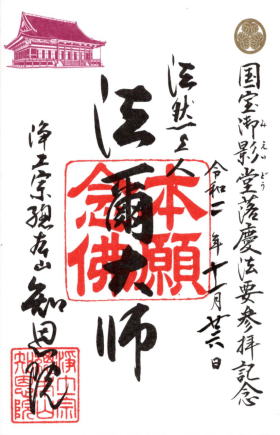 国宝御影堂落慶法要参拝記念
みえいどう
令和二年十一月廿六日
法然上人
法爾大師
本願
念佛
浄土宗總本山
知恩院